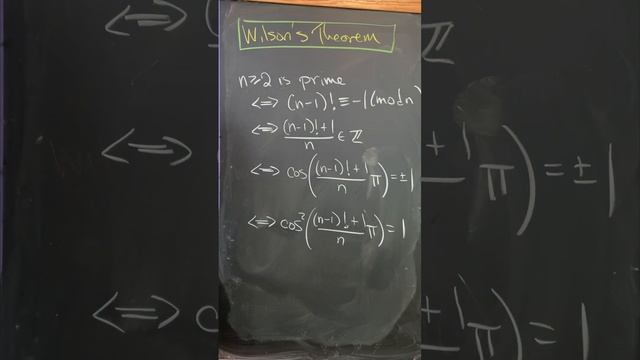 Wilson's Theorem
n≥2 is prime
⟺ (n-1)! ≡ -1 (mod n)
⟺ (n-1)!+1/n ∈ ℤ
⟺ cos((n-1)!+1/n π) = ±1
⟺ cos²((n-1)!+1/n π) = 1